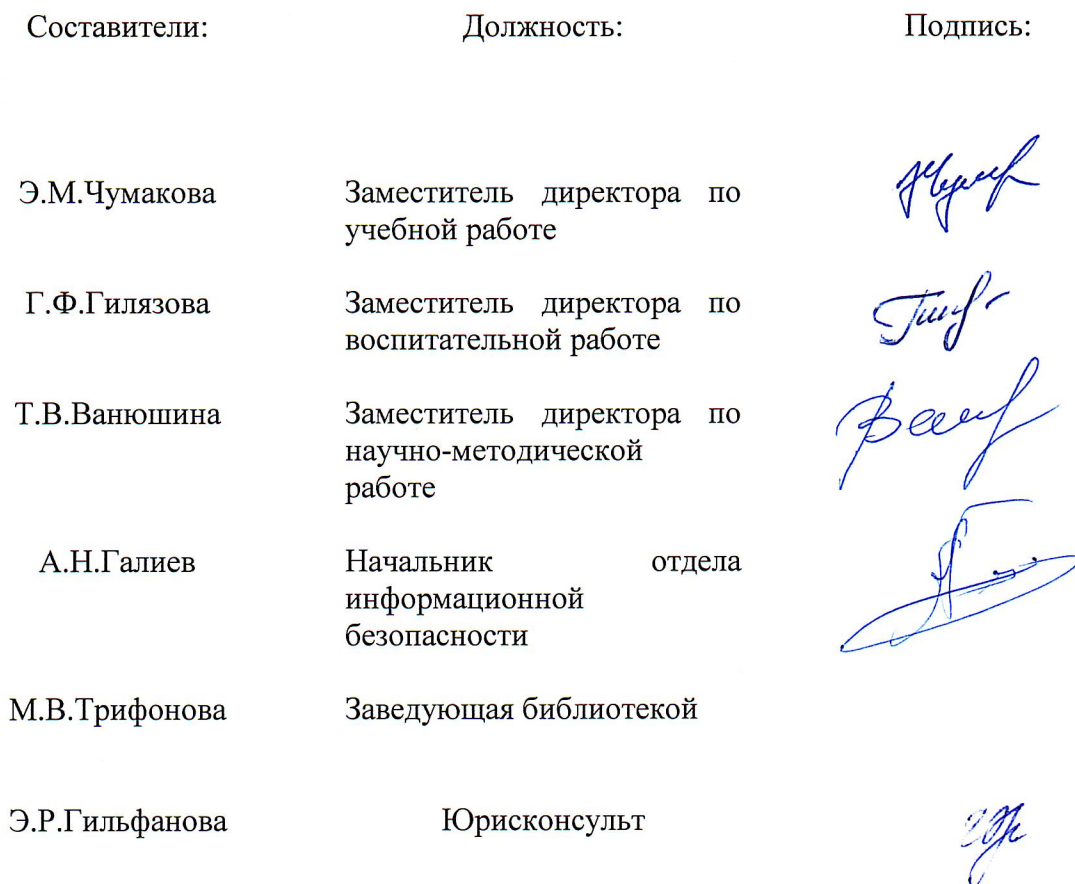 Составители: Должность: Подпись:
Э.М.Чумакова Заместитель директора по
учебной работе
Г.Ф.Гилязова Заместитель директора по
воспитательной работе
Т.В.Ванюшина Заместитель директора по
научно-методической
работе
А.Н.Галиев Начальник отдела
информационной
безопасности
М.В.Трифонова Заведующая библиотекой
Э.Р.Гильфанова Юрисконсульт